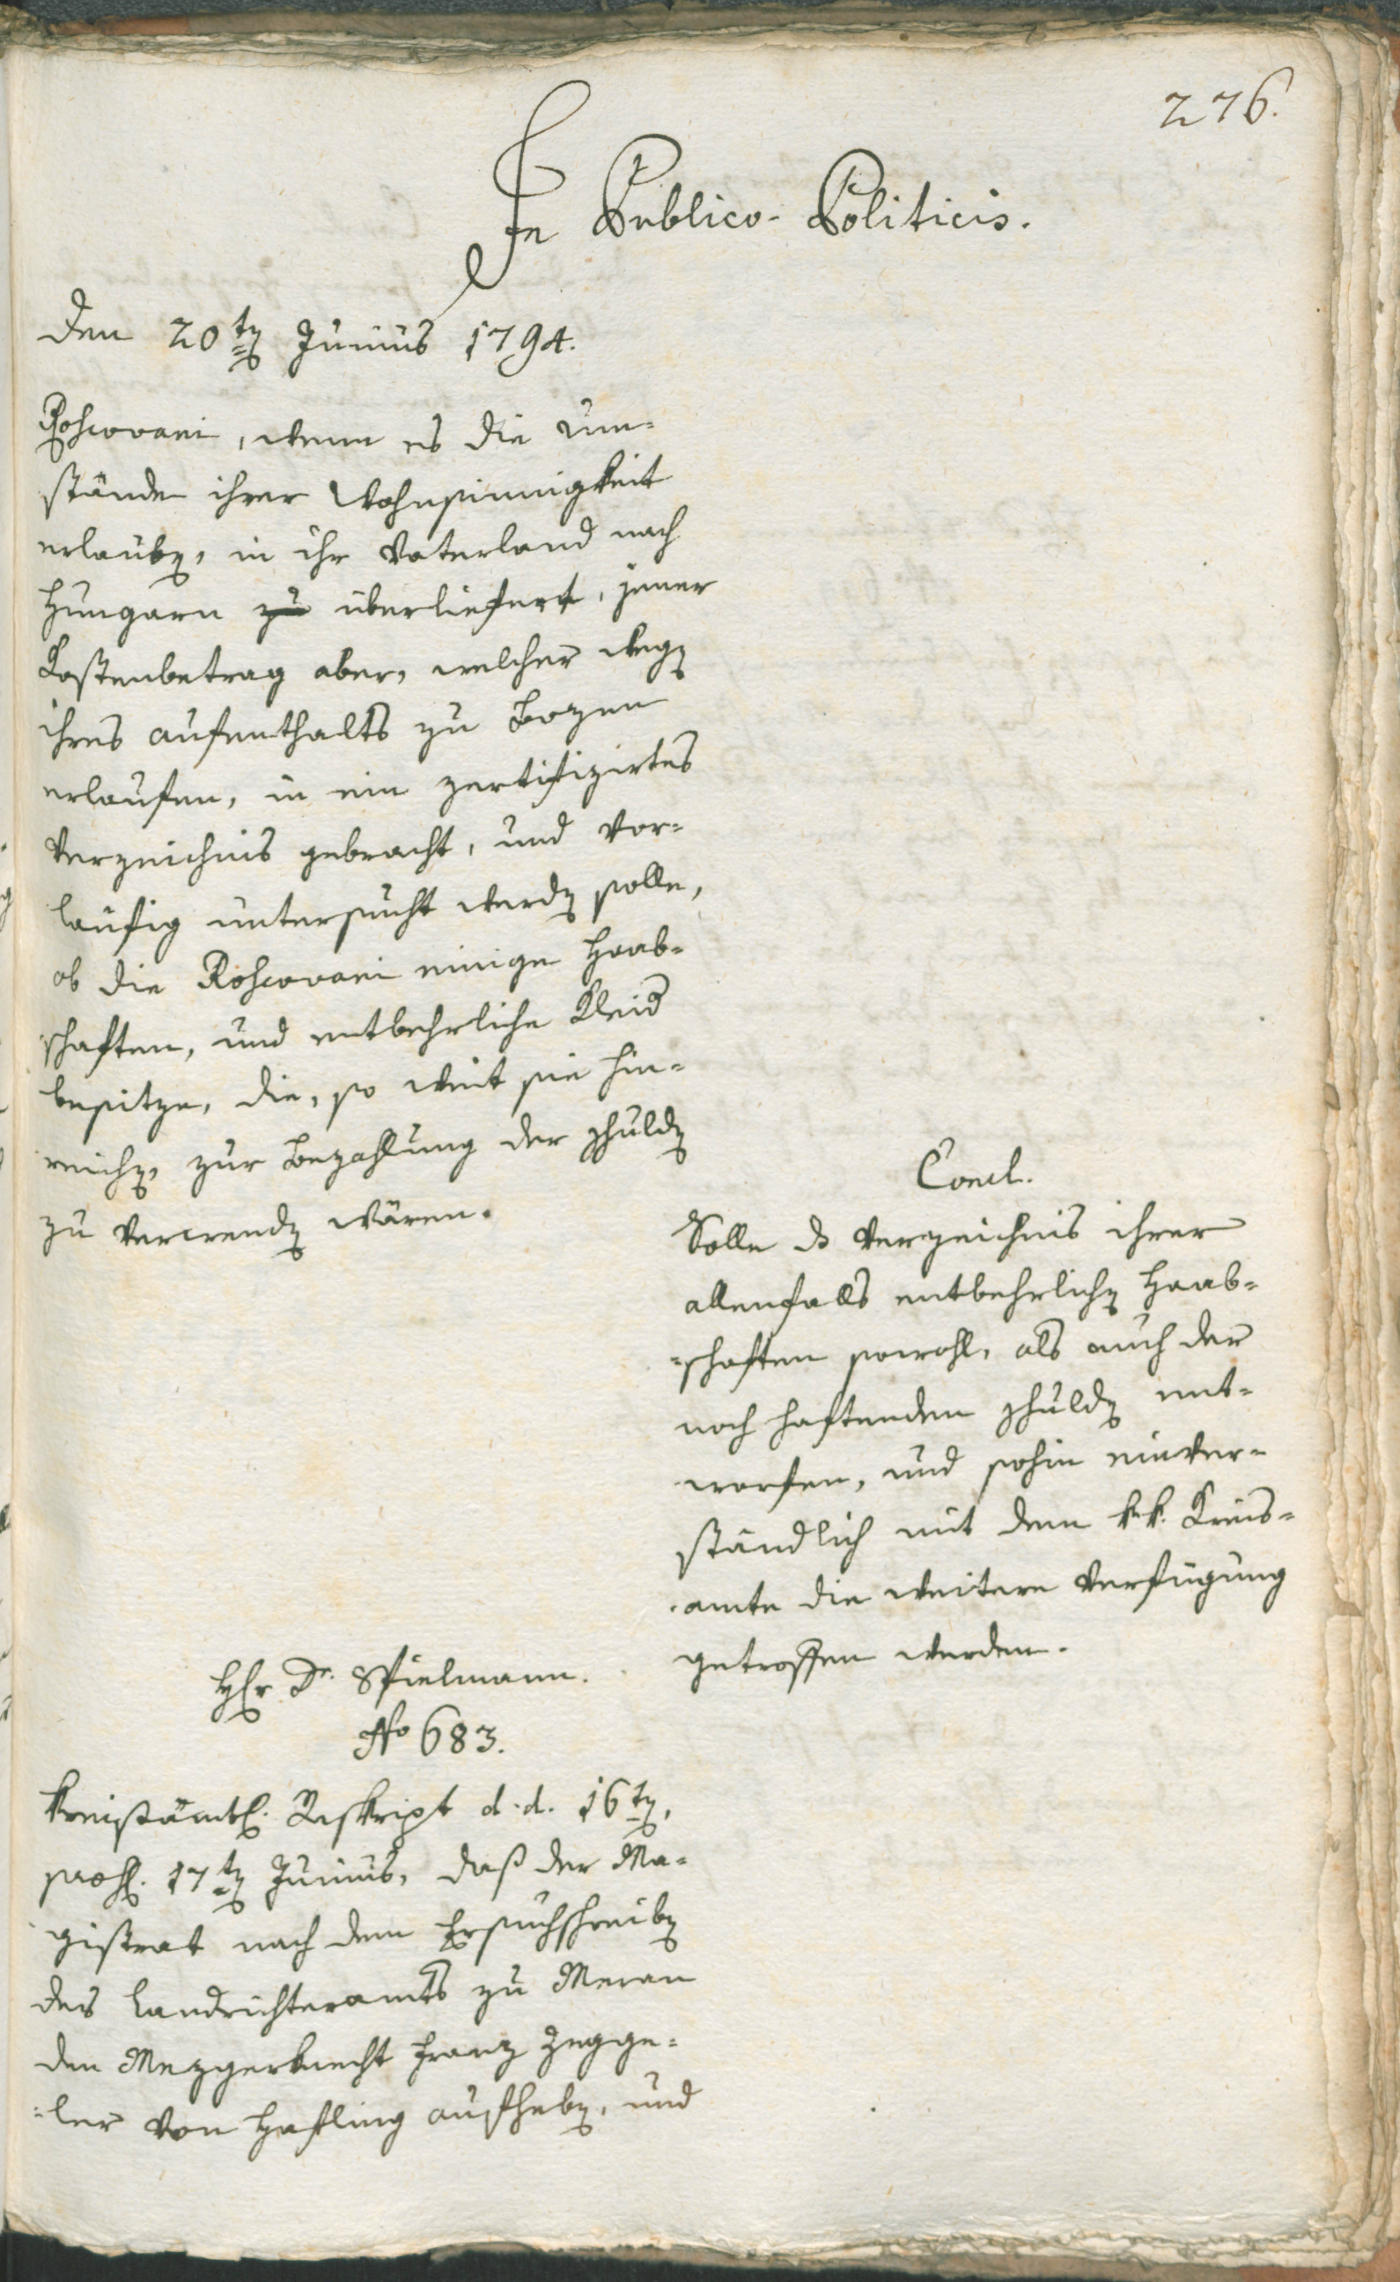 276.
In Publico-Politicis.
Den 20ten Junius 1794.
Roscovani, wenn es die Um-
stände ihrer Wahnsinnigkeit
erlauben, in ihr Vaterland nach
Hungarn zu überliefert, jener
Kostenbetrag aber, welcher wegen
ihres Aufenthalts zu Bozen
erlaufen, in ein zertifizirtes
Verzeichnis gebracht, und vor-
läufig untersucht werden solle,
ob die Roscovani einige Haab-
schaften, und entbehrliche Kleid
besitze, die, so weit sie hin-
reichen, zur Bezahlung der Schulden
zu verwenden wären.
Concl.
Solle das Verzeichnis ihrer
allenfalls entbehrlichen Haab-
-schaften sowohl, als auch der
noch haftenden Schulden ent-
worfen, und sohin einver-
ständlich mit dem k.k. Kreis-
amte die weitere Verfügung
getroffen werden.
Hr Dr. Spielmann.
No 683.
Kreisämtl. Reskript d.d. 16ten,
prod. 17ten Junius, daß der Ma-
gistrat nach dem Ersuchschreiben
des Landrichteramts zu Meran
den Mezgerknecht Franz Zegge-
-ler von Hafling aufheben, und